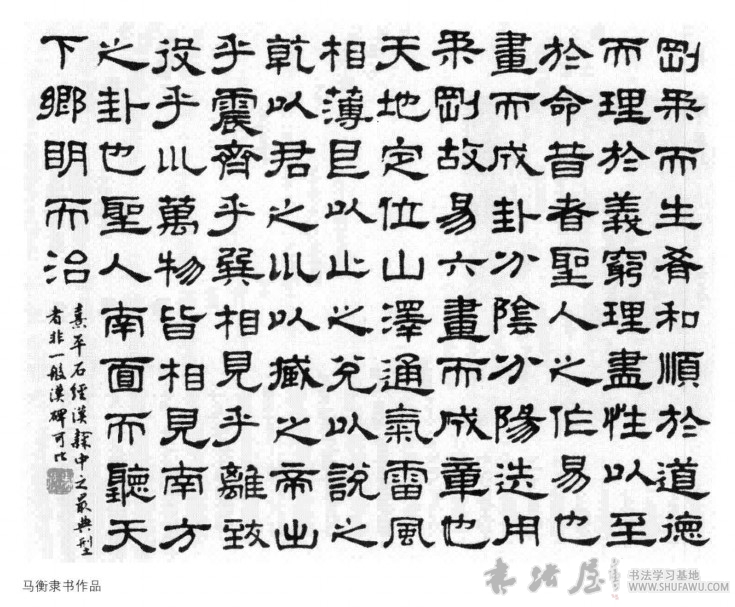 剛柔而生肴和順於道德
而理於義窮理盡性以至
於命昔者聖人之作易也
畫而成卦分陰分陽迭用
柔剛故易六畫而成章也
天地定位山澤通氣雷風
相薄艮以止之兌以說之
乾以君之川以藏之帝出
乎震齊乎巽相見乎離致
役乎川萬物皆相見南方
之卦也聖人南面而聽天
下鄉明而治
熹平石經漢隸中之最典型
者非一般漢碑可比
马衡隶书作品
书法屋
书法学习基地
WWW.SHUFAWU.COM